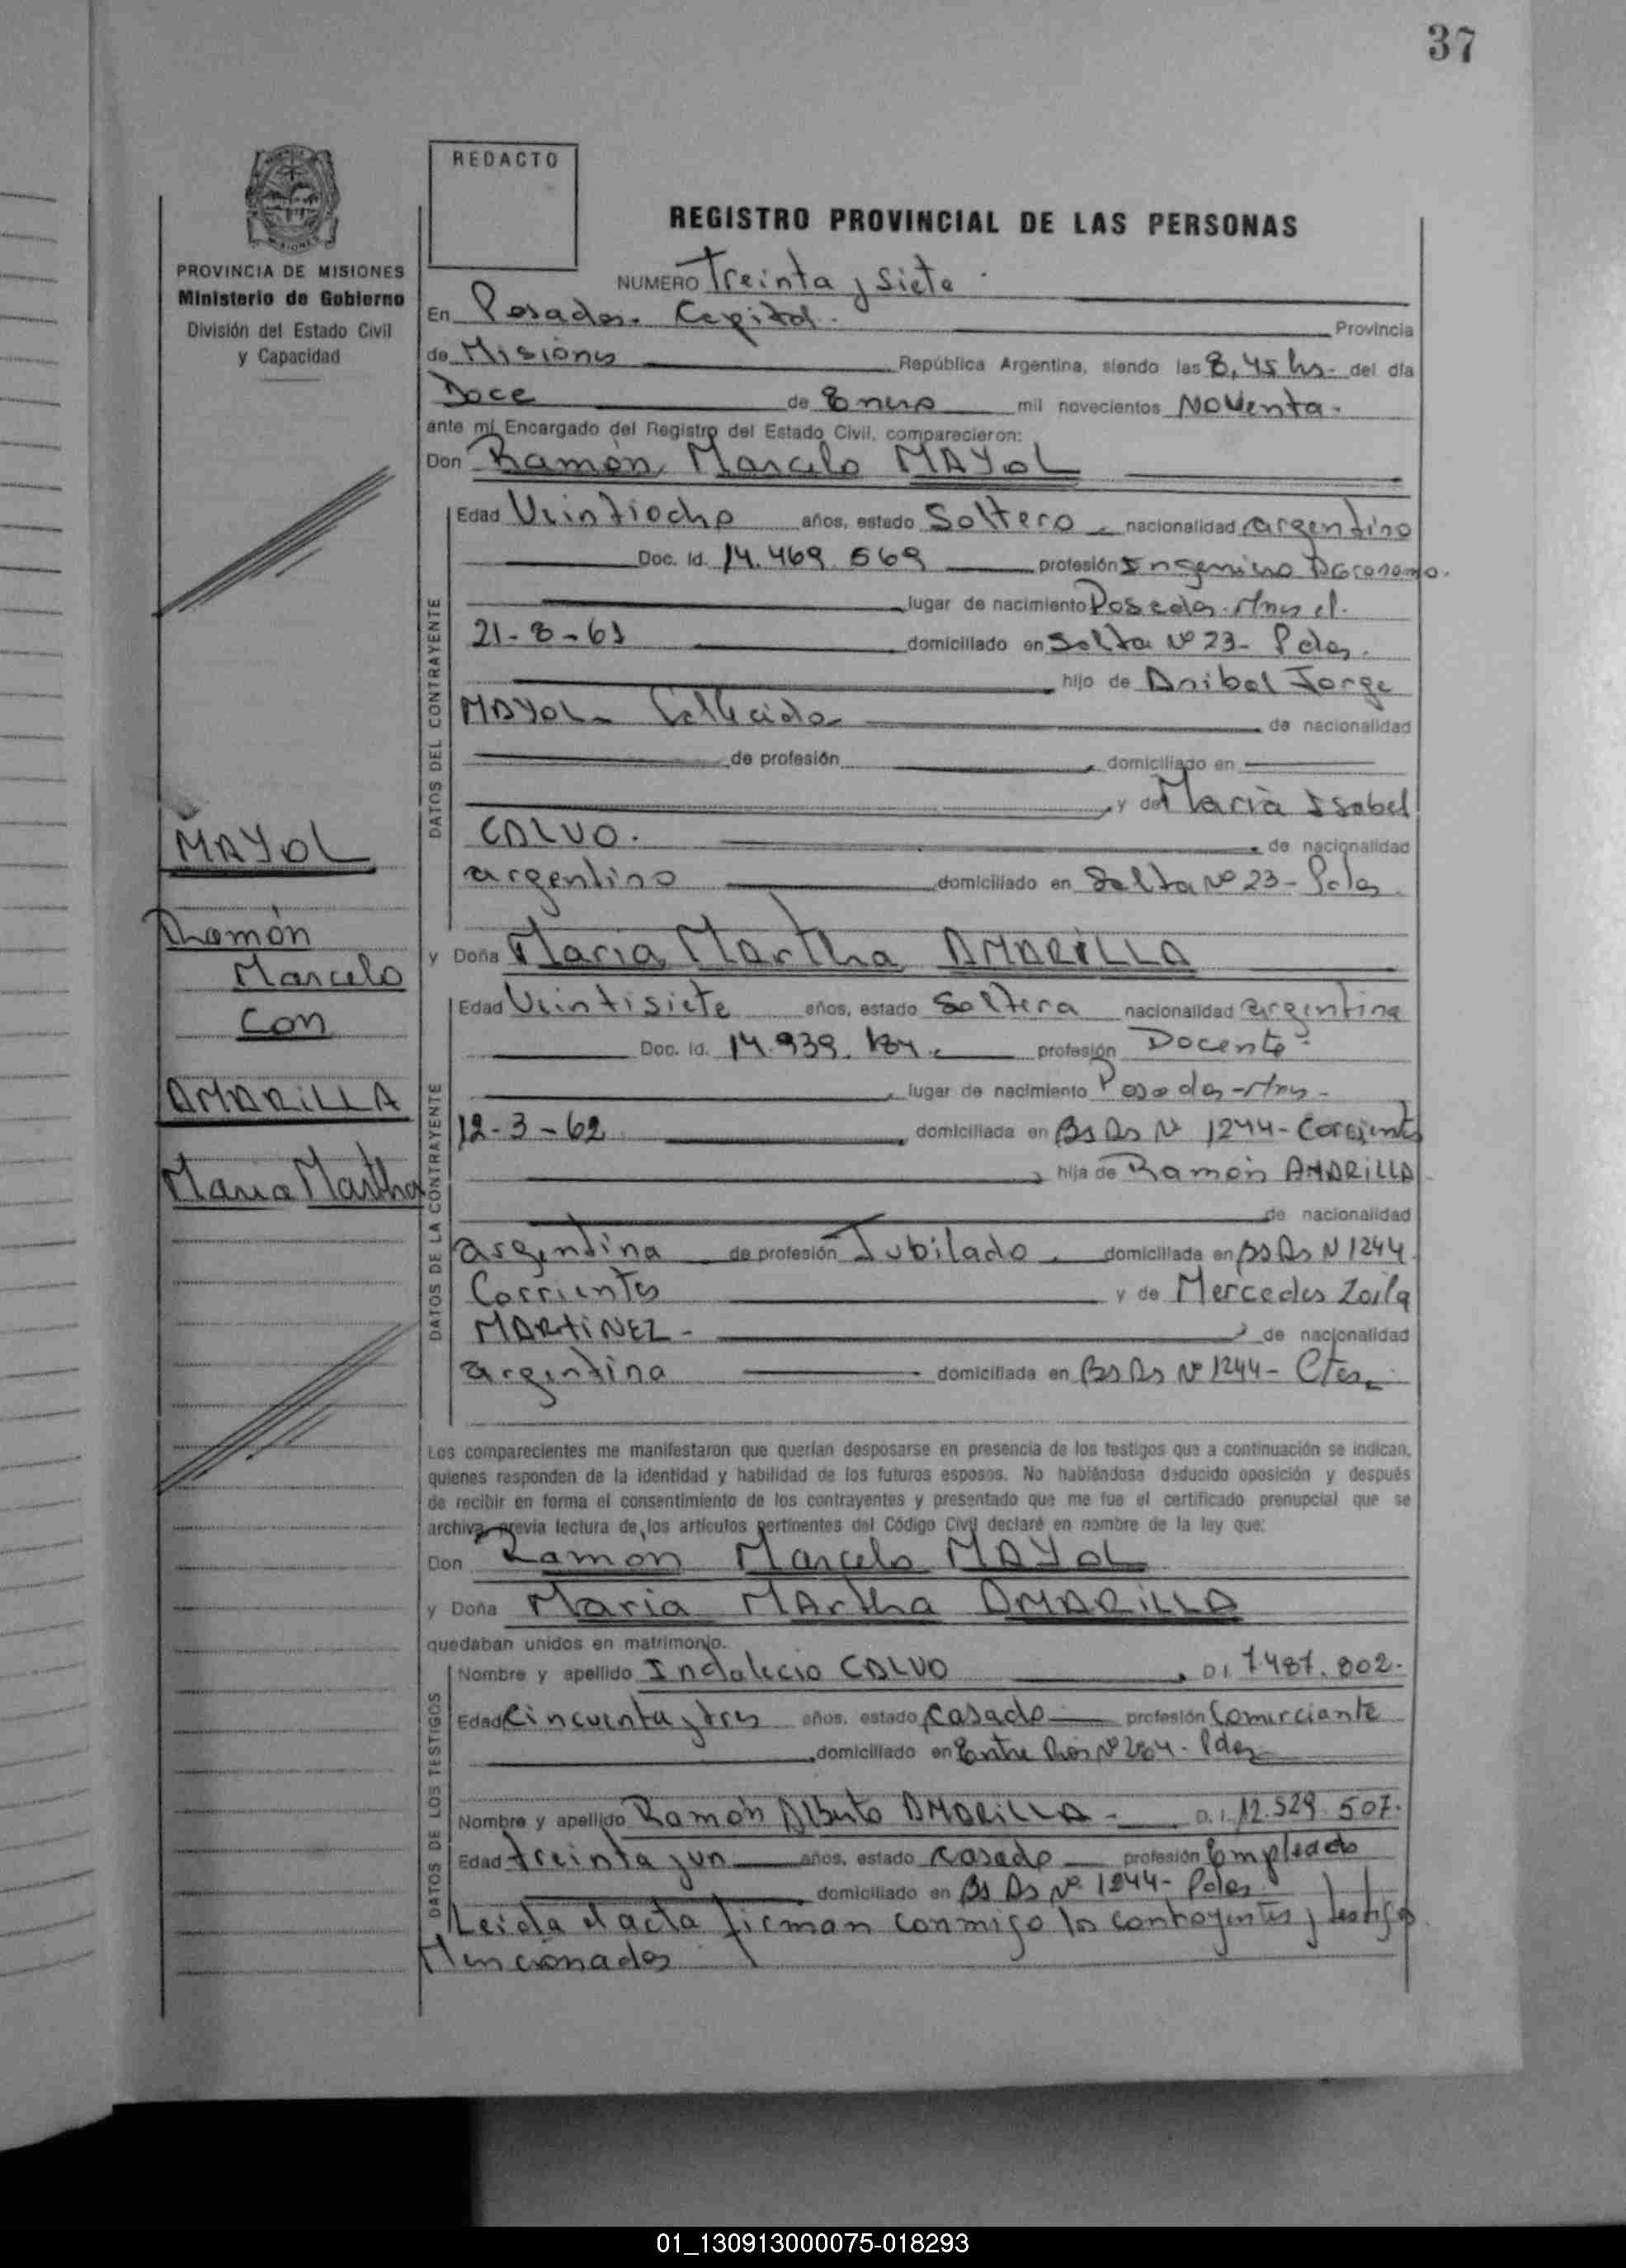 37
REDACTO
REGISTRO PROVINCIAL DE LAS PERSONAS
PROVINCIA DE MISIONES
Ministerio de Gobierno
División del Estado Civil
y Capacidad
NUMERO Treinta y Siete
En Posadas. Capital. Provincia
de Misiones República Argentina, siendo las 8,45 hs. del día
Doce de Enero mil novecientos Noventa.
ante mí Encargado del Registro del Estado Civil, comparecieron:
Don Ramón Marcelo MAYOL
DATOS DEL CONTRAYENTE
Edad Veintiocho años, estado Soltero, nacionalidad argentino
Doc. Id. 14.469.569 profesión Ingeniero Agronomo.
lugar de nacimiento Posadas-Mnes el.
21-8-61 domiciliado en Salta Nº 23- Pdas.
hijo de Anibal Jorge
MAYOL- fallecido de nacionalidad
de profesión domiciliado en
y de María Isabel
CALVO. de nacionalidad
argentino domiciliado en Salta Nº 23- Pdas
MAYOL
Ramón
Marcelo
con
AMARILLA
Maria Martha
y Doña Maria Martha AMARILLA
DATOS DE LA CONTRAYENTE
Edad Veintisiete años, estado Soltera nacionalidad argentina
Doc. Id. 14.939. profesión Docente-
lugar de nacimiento Posadas-Mns-
12-3-62 domiciliada en Bs As Nº 1244-Corrientes
hija de Ramón AMARILLA
de nacionalidad
argentina de profesión Jubilado. domiciliada en Bs As N 1244
Corrientes y de Mercedes Zoila
MARTINEZ- de nacionalidad
argentina domiciliada en Bs As Nº 1244- Ctes.
Los comparecientes me manifestaron que querían desposarse en presencia de los testigos que a continuación se indican,
quienes responden de la identidad y habilidad de los futuros esposos. No habiéndose deducido oposición y después
de recibir en forma el consentimiento de los contrayentes y presentado que me fue el certificado prenupcial que se
archiva previa lectura de los artículos pertinentes del Código Civil declaré en nombre de la ley que:
Don Ramon Marcelo MAYOL
y Doña Maria MArtha AMARILLA
quedaban unidos en matrimonio.
DATOS DE LOS TESTIGOS
Nombre y apellido Indalecio CALVO D.I. 7.487.802.
Edad Cincuenta y tres años, estado Casado profesión Comerciante
domiciliado en Entre Rios Nº - Pdas
Nombre y apellido Ramón Alberto AMARILLA- D.I. 12.529.507.
Edad treinta y un años, estado Casado profesión Empleado
domiciliado en Bs As Nº 1244- Pdas
Leida el acta firman conmigo los contrayentes y testigos
Mencionados
01_130913000075-018293